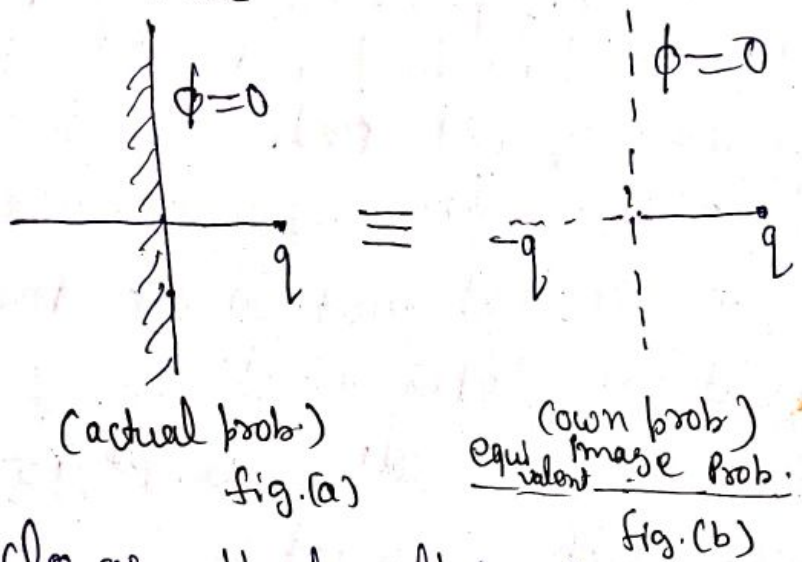 ϕ=0
ϕ=0
q
≡
-q
q
(actual prob.)
fig.(a)
(own prob)
equivalent Image Prob.
fig.(b)